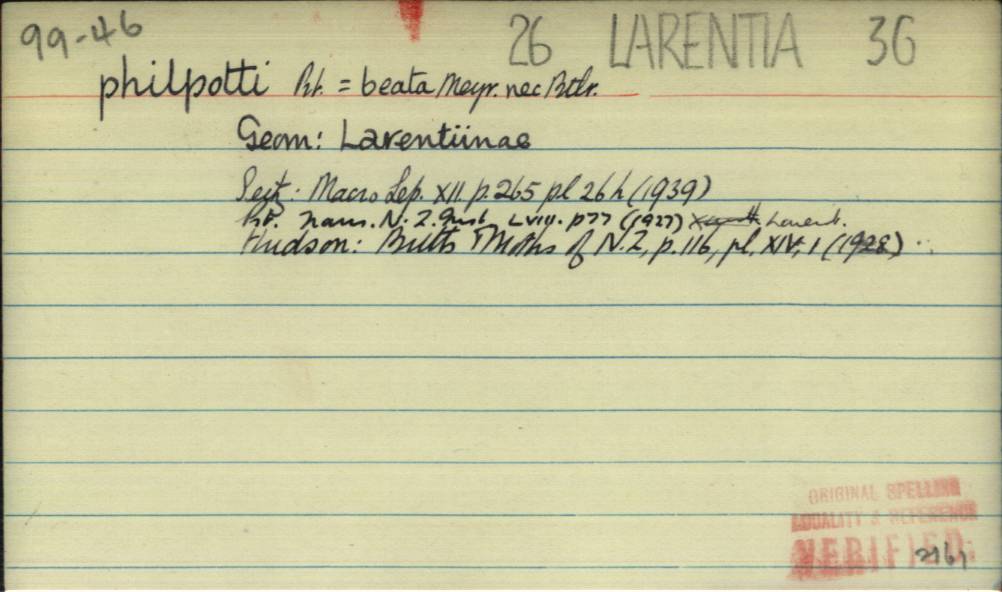 99-46
26 LARENTIA 3G
philpotti Prt. = beata Meyr. nec Btlr.
Geom: Larentiinae
Seitz: Macro Lep. XII. p. 265 pl 26 h (1939)
Prt. Trans. N.Z. Inst. LVIII. p77 (1927) Larent.
Hudson: Butts & Moths of N.Z, p. 116, pl. XIV, 1 (1928)
ORIGINAL SPELLING
LOCALITY & REFERENCE
VERIFIED: